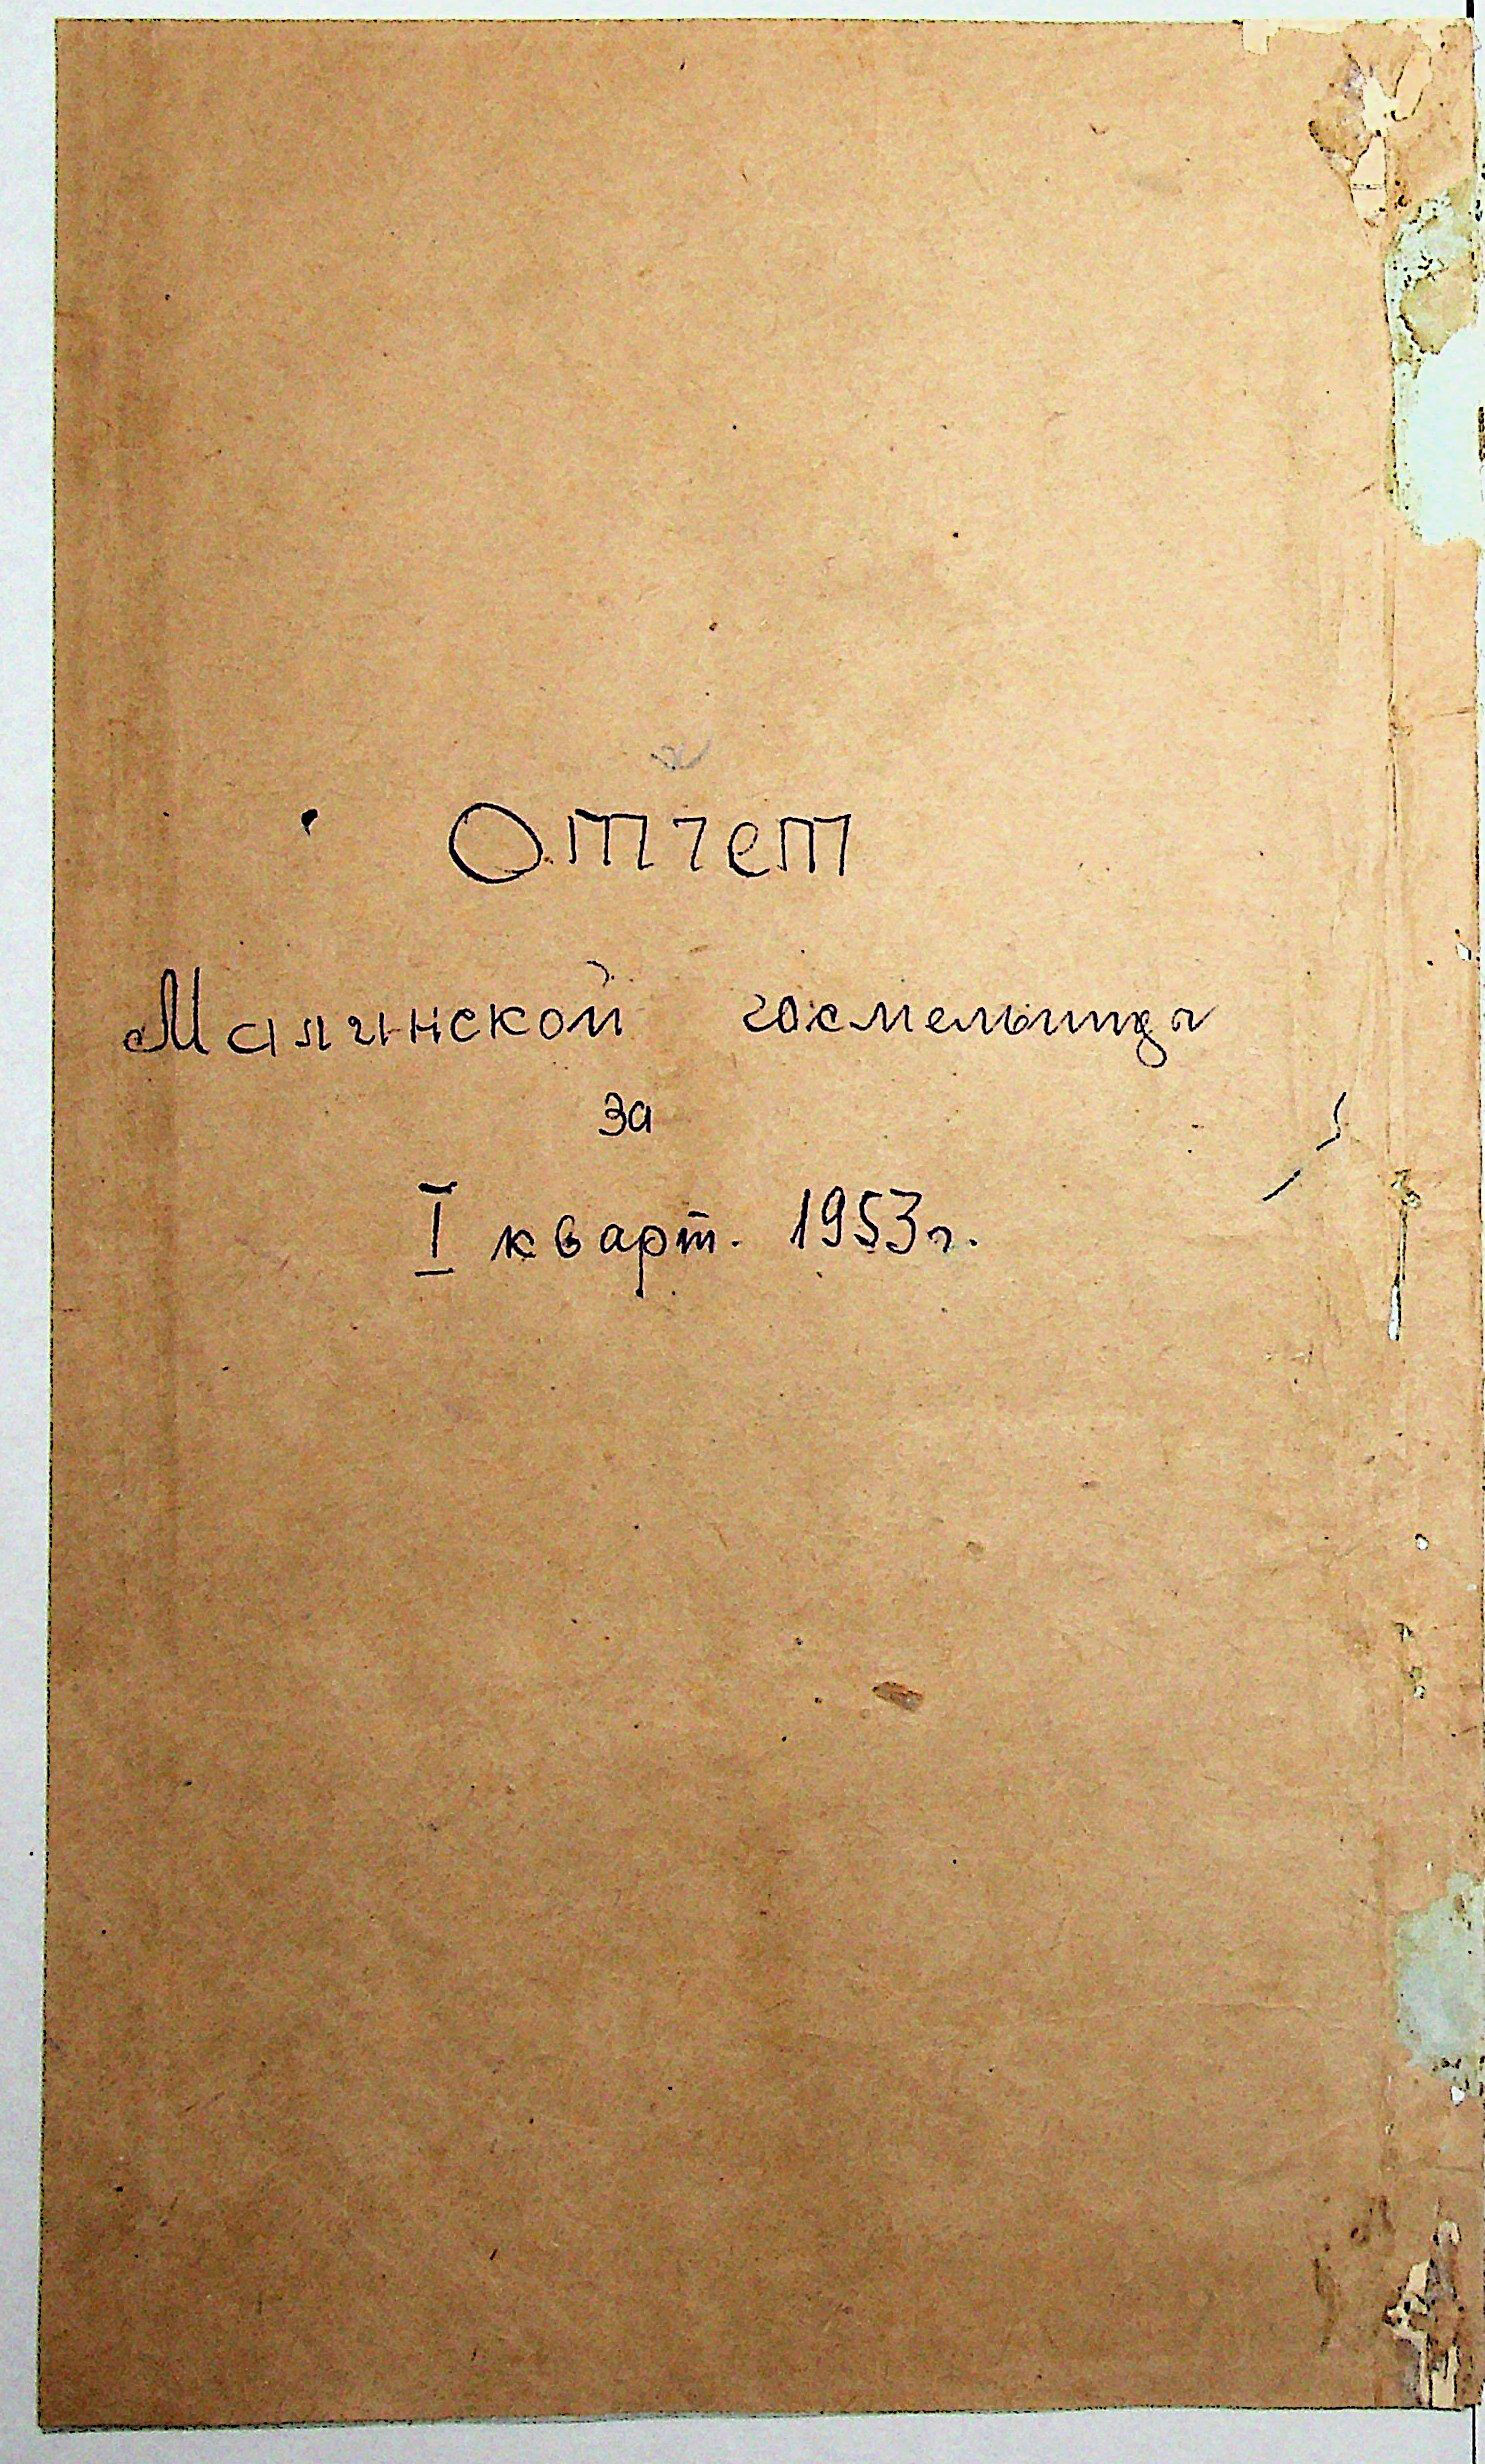 Отчет
Малинской госмельницы
за
I кварт. 1953 г.